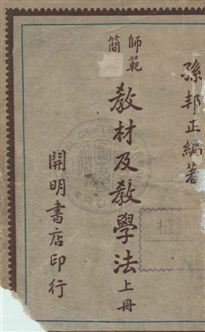 孫邦正編著
簡師範
教材及教學法上冊
開明書店印行